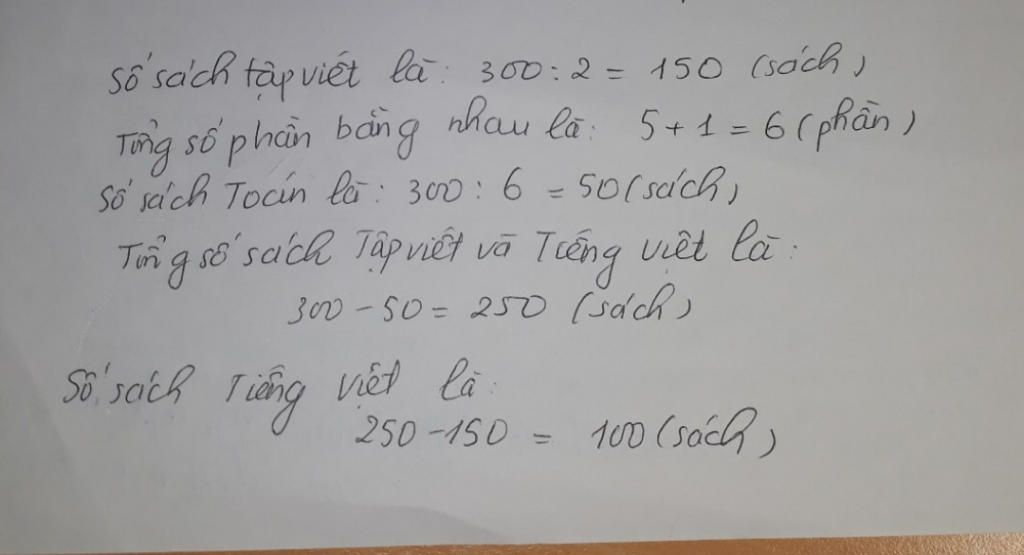 Số sách tập viết là: 300 : 2 = 150 (sách)
Tổng số phần bằng nhau là: 5 + 1 = 6 (phần)
Số sách Toán là: 300 : 6 = 50 (sách)
Tổng số sách Tập viết và Tiếng việt là:
300 - 50 = 250 (sách)
Số sách Tiếng việt là:
250 - 150 = 100 (sách)